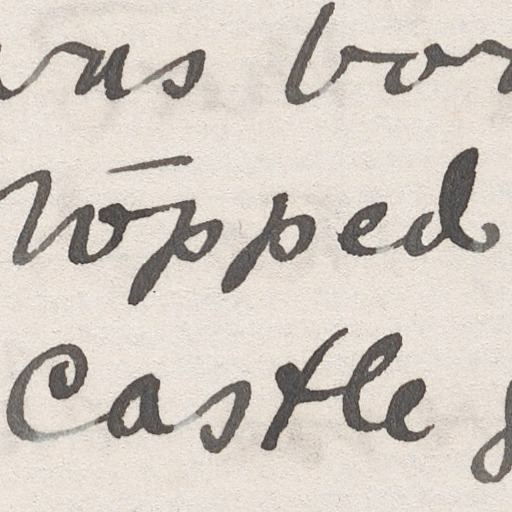 was bor
topped
Castle g